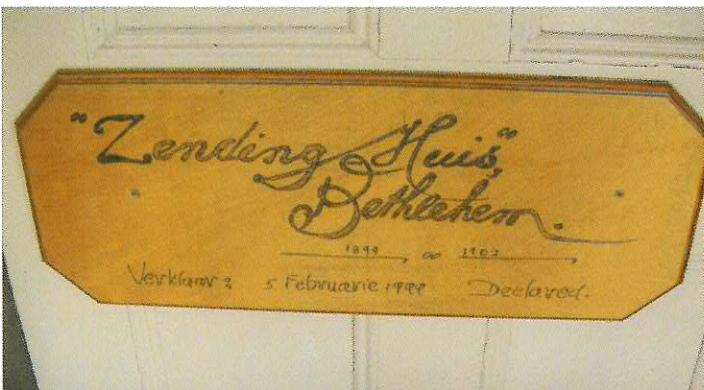 "Zending Huis"
Bethlehem.
1899 1902
Verklaar 5 Februarie 1999 Declared.